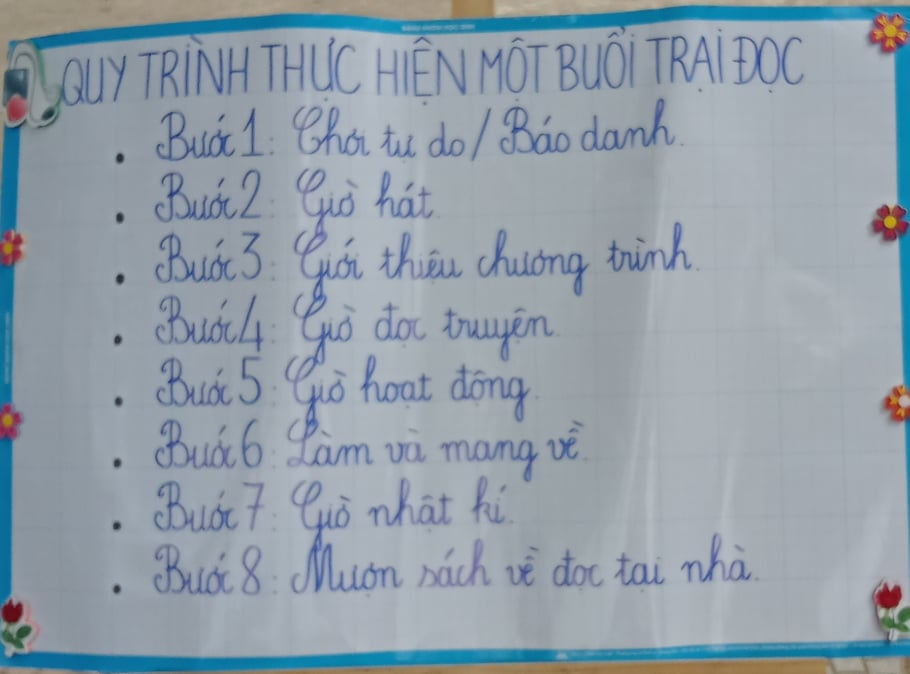 QUY TRÌNH THỰC HIỆN MỘT BUỔI TRẠI ĐỌC
. Bước 1: Chơi tự do/ Báo danh.
. Bước 2: Giờ hát
. Bước 3: Giới thiệu chương trình.
. Bước 4: Giờ đọc truyện
. Bước 5: Giờ hoạt động.
. Bước 6: Làm và mang về.
. Bước 7: Giờ nhật kí.
. Bước 8: Mượn sách về đọc tại nhà.